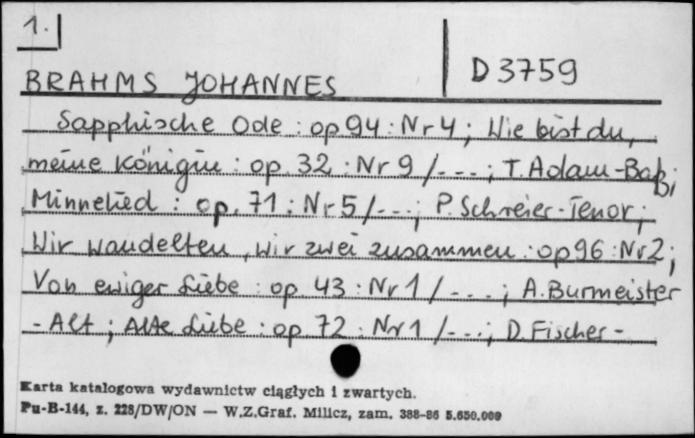 1.
D 3759
BRAHMS JOHANNES
Sapphische Ode : op 94 : Nr 4 ; Wie bist du,
meine Königin : op. 32 : Nr 9 /--- ; T. Adam-Baß ;
Minnelied : op. 71 : Nr 5 /--- ; P. Schreier-Tenor ;
Wir wandelten, wir zwei zusammen : op 96 : Nr 2 ;
Von ewiger Liebe : op. 43 : Nr 1 / --- ; A. Burmeister
- Alt ; Alte Liebe : op 72 : Nr 1 /--- ; D. Fischer-
Karta katalogowa wydawnictw ciągłych i zwartych.
Pu-B-144, z. 228/DW/ON — W.Z.Graf. Milicz, zam. 388-86 5.650.000